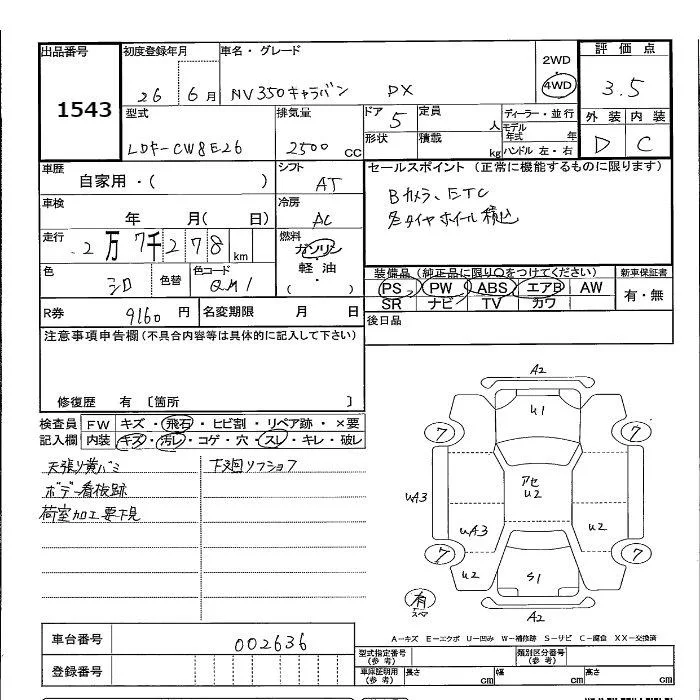 出品番号 初度登録年月 車名・グレード 評価点
1543 26 6月 NV350キャラバン DX 2WD 4WD 3.5
型式 排気量 ドア 5 定員 人 ディーラー・並行 外装 内装
LDF-CW8E26 2500 CC 形状 積載 kg モデル年式 年 ハンドル 左・右 D C
車歴 自家用・( ) シフト AT セールスポイント (正常に機能するものに限ります)
車検 年 月( 日) 冷房 AC Bカメラ、ETC
冬タイヤホイール積込
走行 2万7千278km 燃料 ガソリン・軽油・( )
色 シロ 色替 色コード QM1 装備品 (純正品に限り○をつけてください) 新車保証書
PS PW ABS エアB AW 有・無
SR ナビ TV カワ
R券 9160円 名変期限 月 日 後日品
注意事項申告欄 (不具合内容等は具体的に記入して下さい)
修復歴 有 〔箇所 〕
検査員記入欄 FW キズ・飛石・ヒビ割・リペア跡・×要
内装 キズ・汚レ・コゲ・穴・スレ・キレ・破レ
天張り黄バミ 下廻りフショフ
ボデー看板跡
荷室加工要下見
A2
U1
7 7
アセ
U2
UA3
UA3 U2
7 7
U2 S1
有
スペア
A2
A-キズ E-エクボ U-凹み W-補修跡 S-サビ C-腐食 XX-交換済
車台番号 002636 型式指定番号 (参考) 類別区分番号 (参考)
登録番号 車庫証明用 (参考) 長さ cm 幅 cm 高さ cm